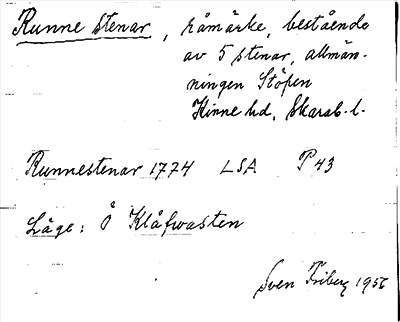 Runne stenar, råmärke, bestående
av 5 stenar, allmän-
ningen Stöpen
Kinne hd, Skarab. l.
Runnestenar 1774 LSA P 43
Läge: Å Klåfwasten
Sven Friberg 1956